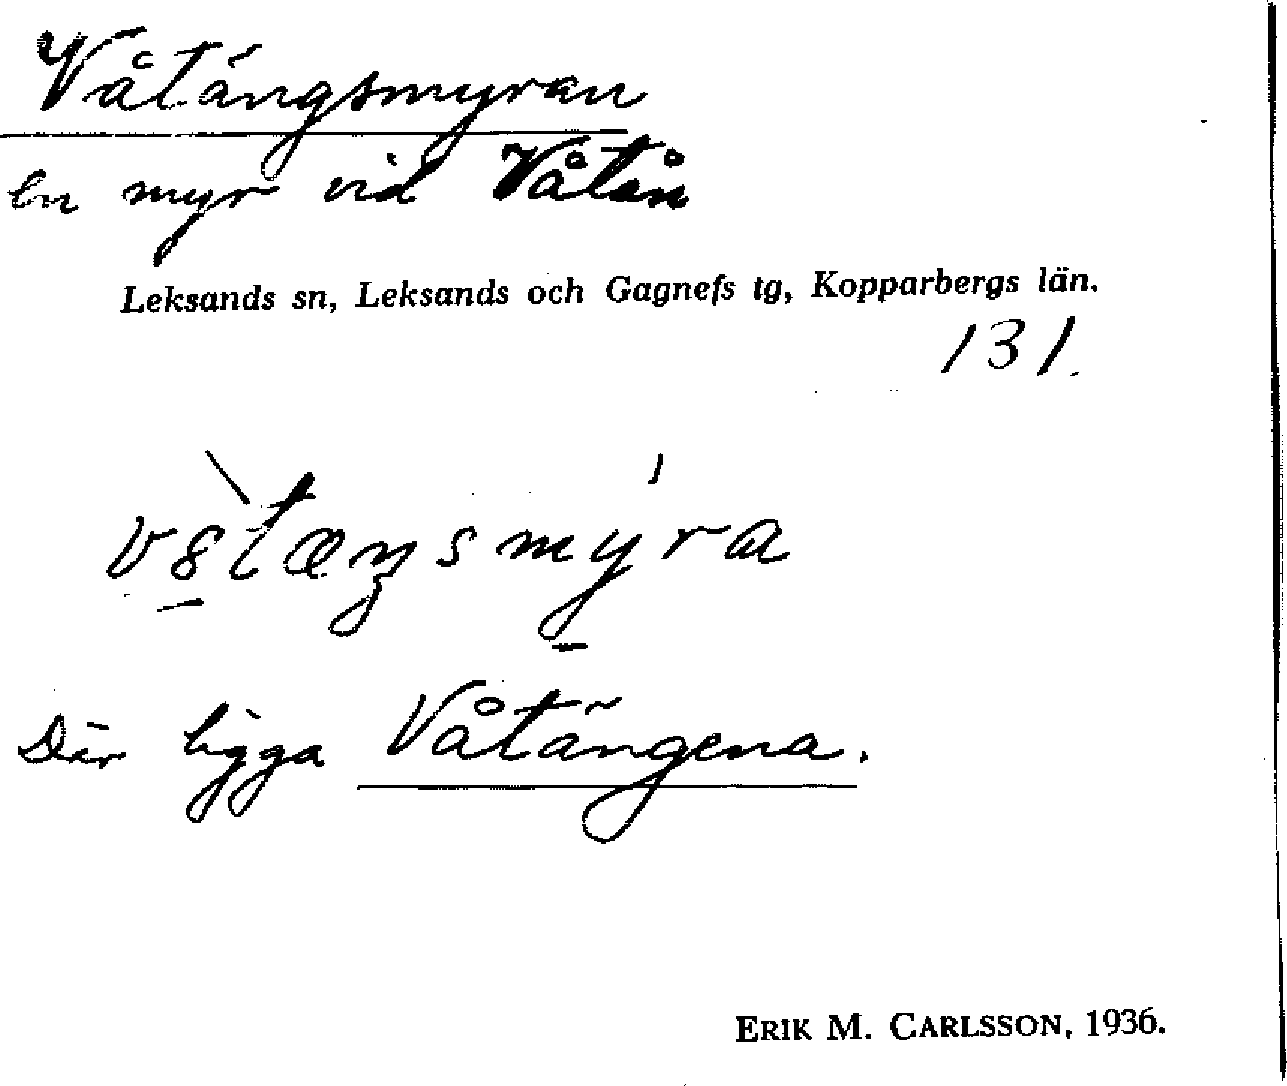 Våtängsmyran
En myr vid Våtån
Leksands sn, Leksands och Gagnefs tg, Kopparbergs län.
131.
Där ligga Våtängena.
ERIK M. CARLSSON, 1936.